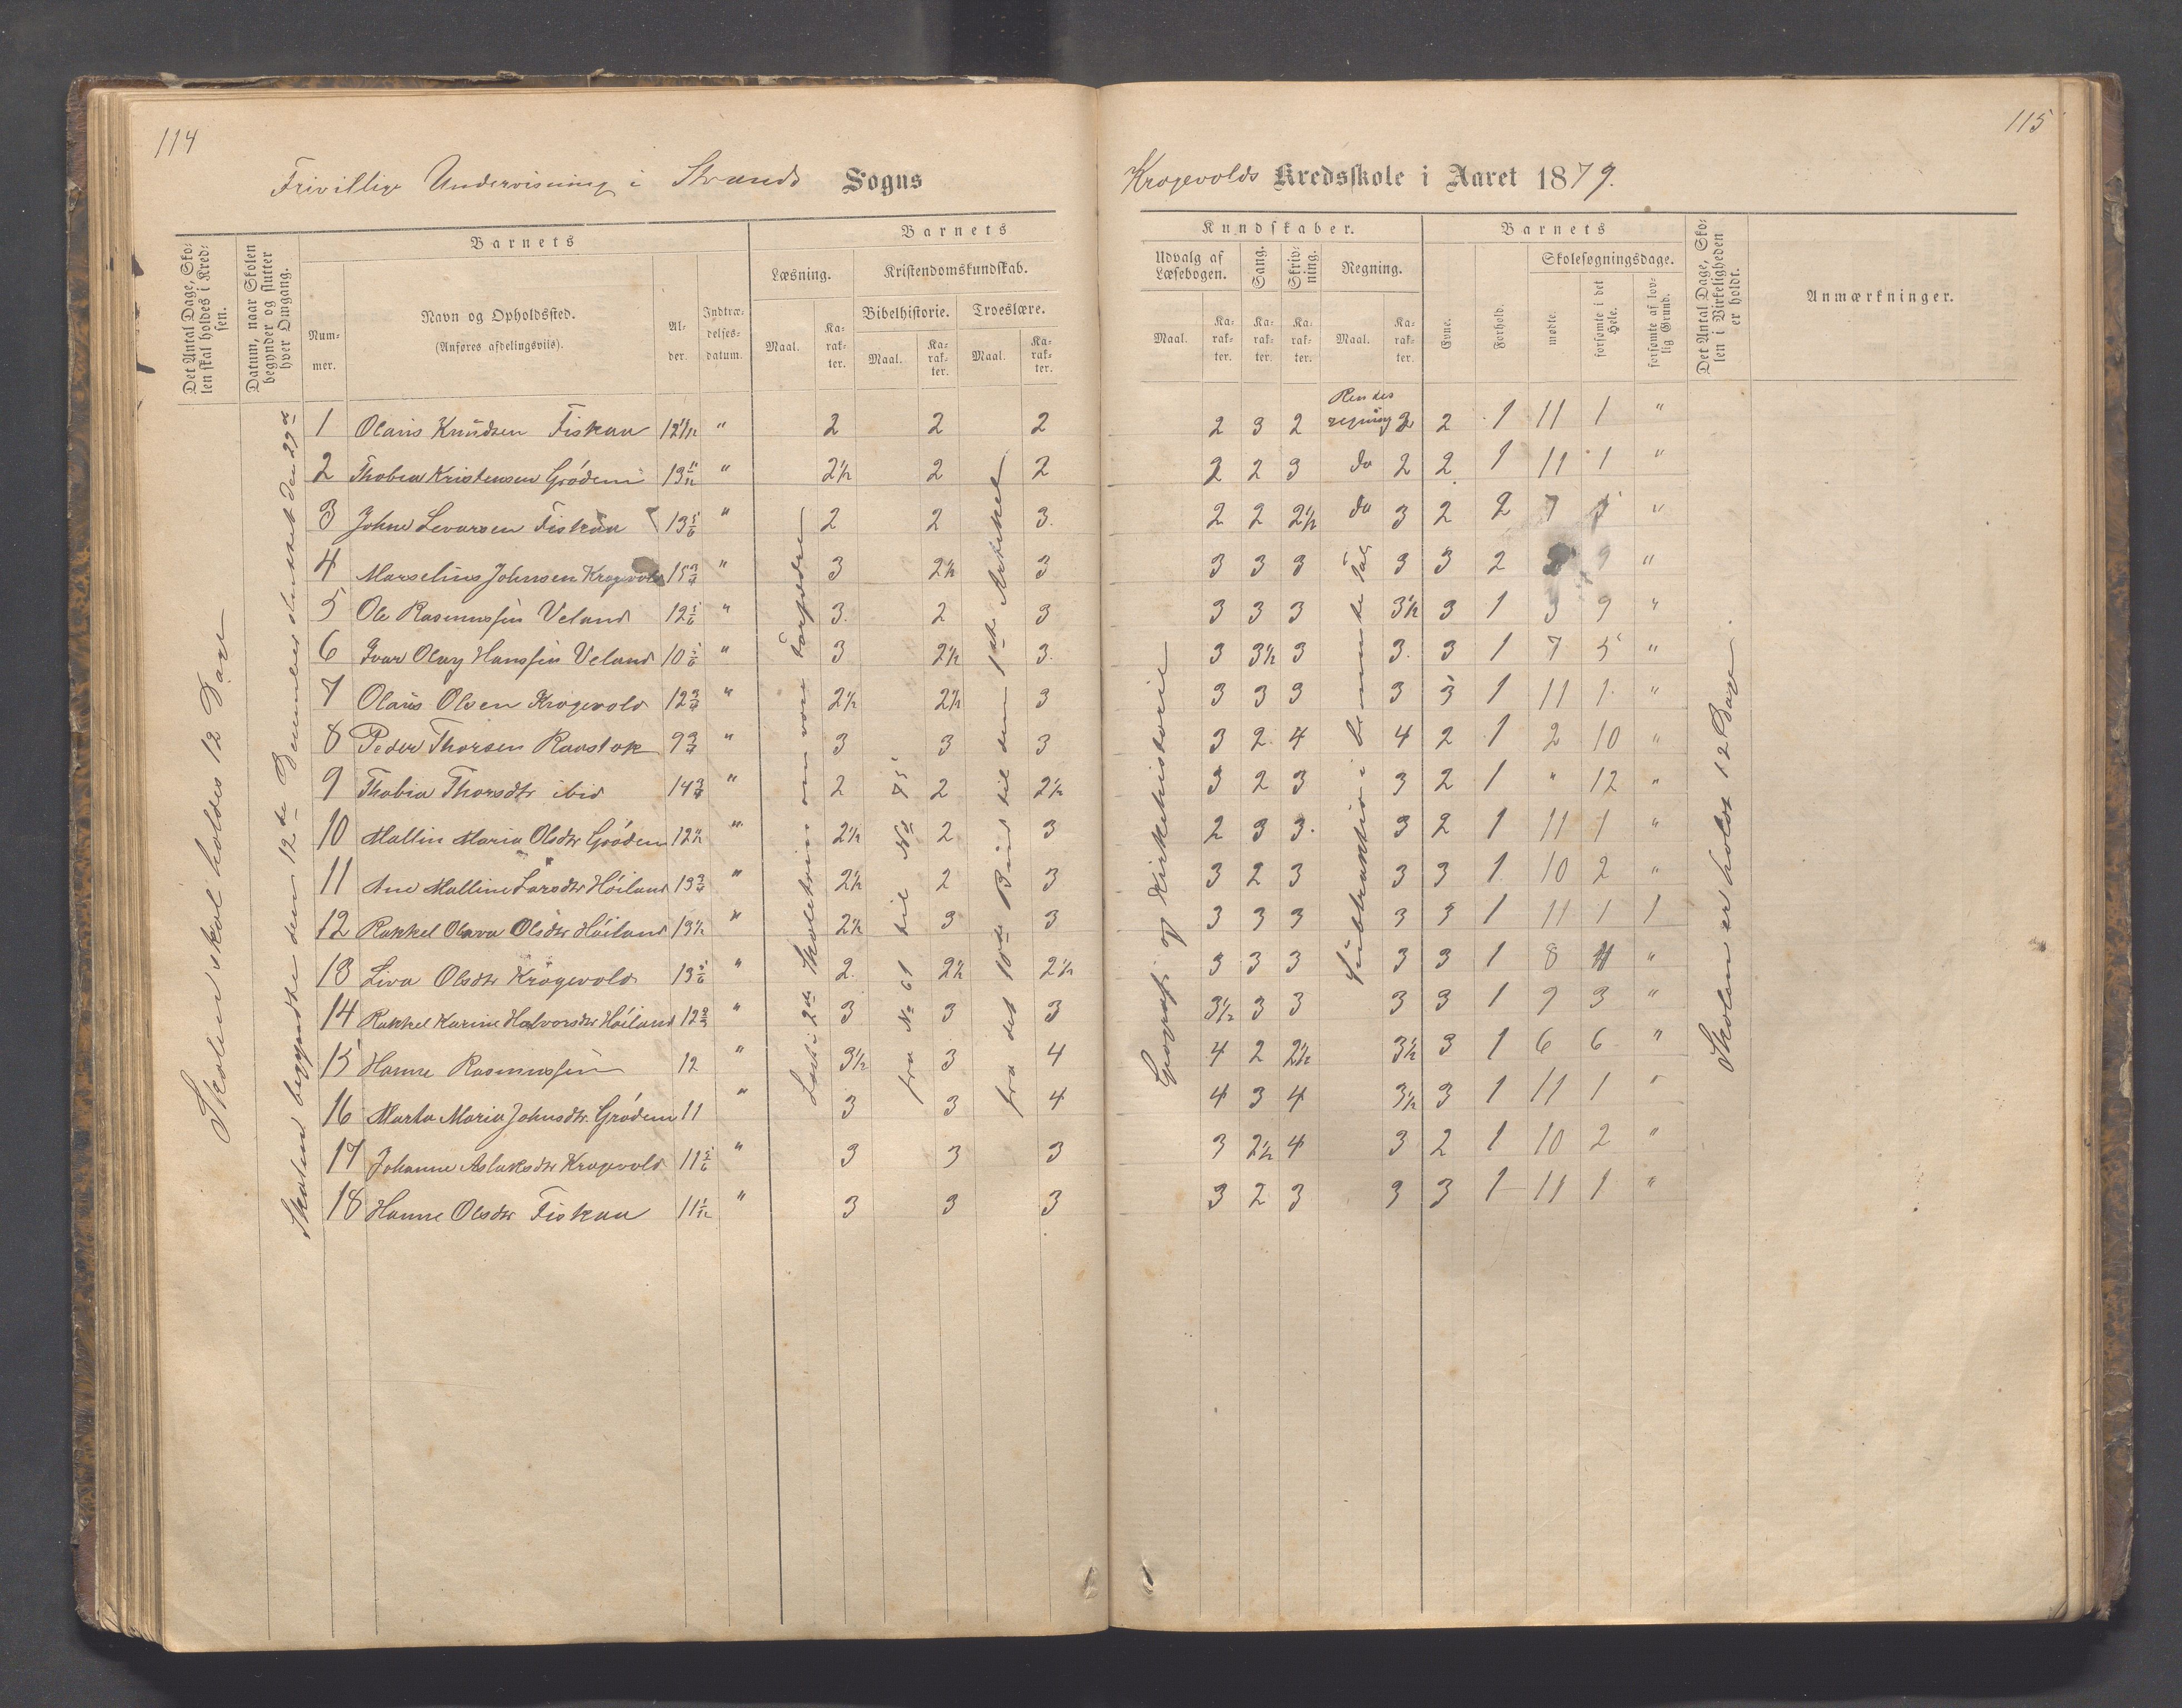 114
Frivillige Undervisning i Strands Sogns
Det Antal Dage, Skolen skal holdes i Kredsen.
Datum, naar Skolen begynder og slutter hver Omgang.
Barnets
Nummer.
Navn og Opholdssted.
(Anføres afdelingsviis).
Alder.
Indtrædelsesdatum.
Barnets
Læsning.
Kristendomskundskab.
Bibelhistorie.
Troeslære.
Maal.
Karakter.
Maal.
Karakter.
Maal.
Karakter.
Skolen skal holdes 12 Dage
Skolen begyndte den 12de December sluttet den 22de
Læst i 2det Skoletrin om vore Forfædre
fra No 61 til No 75
fra det 10de Bud til den 1ste Artikel
1 Olaus Knudsen Fiskaa 12 1/12 " 2 2 2
2 Thobea Kristensen Grødem 13 11/12 " 2½ 2 2
3 Johne Sevarsen Fiskaa 13 5/6 " 2 2 3.
4 Marselius Johnsen Krogevold 15 3/4 " 3 2½ 3
5 Ole Rasmussen Veland 12 1/6 " 3. 2 3
6 Ivar Olay Hanssen Veland 10 5/6 " 3 2½ 3.
7 Olaus Olsen Krogevold 12 3/4 " 2½ 2½ 3
8 Peder Thorsen Ravstok 9 3/4 " 3 3 3
9 Thobia Thorsdtr ibid 14 3/4 " 2 2 2½
10 Mallin Maria Olsdtr Grødem 12½ " 2½ 2 3
11 Ane Malline Larsdtr Høiland 13 3/4 " 2½ 2 3
12 Rakkel Olava Olsdtr Høiland 13½ " 2½ 3 3
13 Liva Olsdtr Krogevold 13 5/6 " 2. 2½ 2½
14 Rakkel Karine Halvorsdtr Høiland 12 2/3 " 3 3 3
15 Hanne Rasmussen 12 " 3½ 3 4
16 Marta Maria Johnsdtr. Grødem 11 " 3 3 4
17 Johanne Aslaksdtr Krogevold 11 5/6 " 3 3 3
18 Hanne Olsdtr Fiskaa 11 1/12 " 3 3 3
115
Krogevolds Kredsskole i Aaret 1879.
Kundskaber.
Udvalg af Læsebogen.
Sang.
Skrivning.
Regning.
Maal.
Karakter.
Karakter.
Karakter.
Maal.
Karakter.
Barnets
Evne.
Forhold.
Skolesøgningsdage.
mødte.
forsømte i det Hele.
forsømte af lovlig Grund.
Det Antal Dage, Skolen i Virkeligheden er holdt.
Anmærkninger.
Geografi og Kirkehistorie
Subtraktion i benævnte Tal
Skolen er holdt 12 Dage.
2 3 2 Rentesregning 2 2 1 11 1 "
2 2 3 do 2 2 1 11 1 "
2 2 2½ do 3 2 2 7 5 "
3 3 3 3 3 2 9 "
3 3 3 3½ 3 1 3 9 "
3 3½ 3 3. 3 1 7 5 "
3 3 3 3 3 1 11 1 "
3 2 4 4 2 1 2 10 "
3 2 3 3 2 1 " 12 "
2 3 3. 3 2 1 11 1 "
3 2 3 3 3 1 10 2 "
3 3 3 3 3 1 11 1 1
3 3 3 3 3 1 8 4 "
3½ 3 3 3 3 1 9 3 "
4 2 2½ 3½ 3 1 6 6 "
4 3 4 3½ 3 1 11 1 "
3 2½ 4 3 2 1 10 2 "
3 2 3 3 3 1 11 1 "